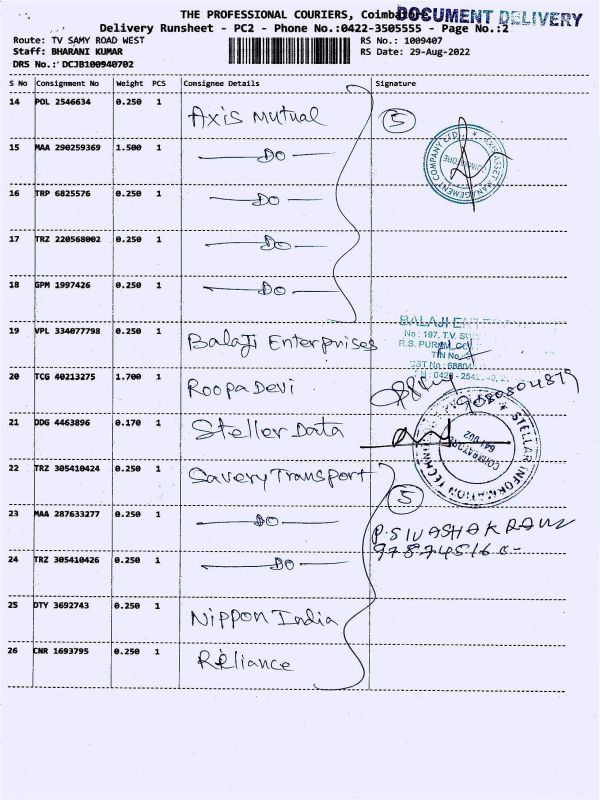 THE PROFESSIONAL COURIERS, Coimbatore
DOCUMENT DELIVERY
Delivery Runsheet - PC2 - Phone No.:0422-3505555 - Page No.:2
Route: TV SAMY ROAD WEST RS No.: 1009407
Staff: BHARANI KUMAR RS Date: 29-Aug-2022
DRS No.: DCJB100940702
S No Consignment No Weight PCS Consignee Details Signature
14 POL 2546634 0.250 1 Axis Mutual 5
15 MAA 290259369 1.500 1 DO
16 TRP 6825576 0.250 1 DO
17 TRZ 220568002 0.250 1 DO
18 GPM 1997426 0.250 1 DO
19 VPL 334077798 0.250 1 Balaji Enterprises
BALAJI
No: 197, T.V.
R.S. PURAM,
TIN No
20 TCG 40213275 1.700 1 Roopa Devi
21 DDG 4463896 0.170 1 Steller Data
STELLAR INFORMATION
COIMBATORE
641 002
22 TRZ 305410424 0.250 1 Savery Transport 5
23 MAA 287633277 0.250 1 DO
24 TRZ 305410426 0.250 1 DO
25 DTY 3692743 0.250 1 Nippon India
26 CNR 1693795 0.250 1 Reliance